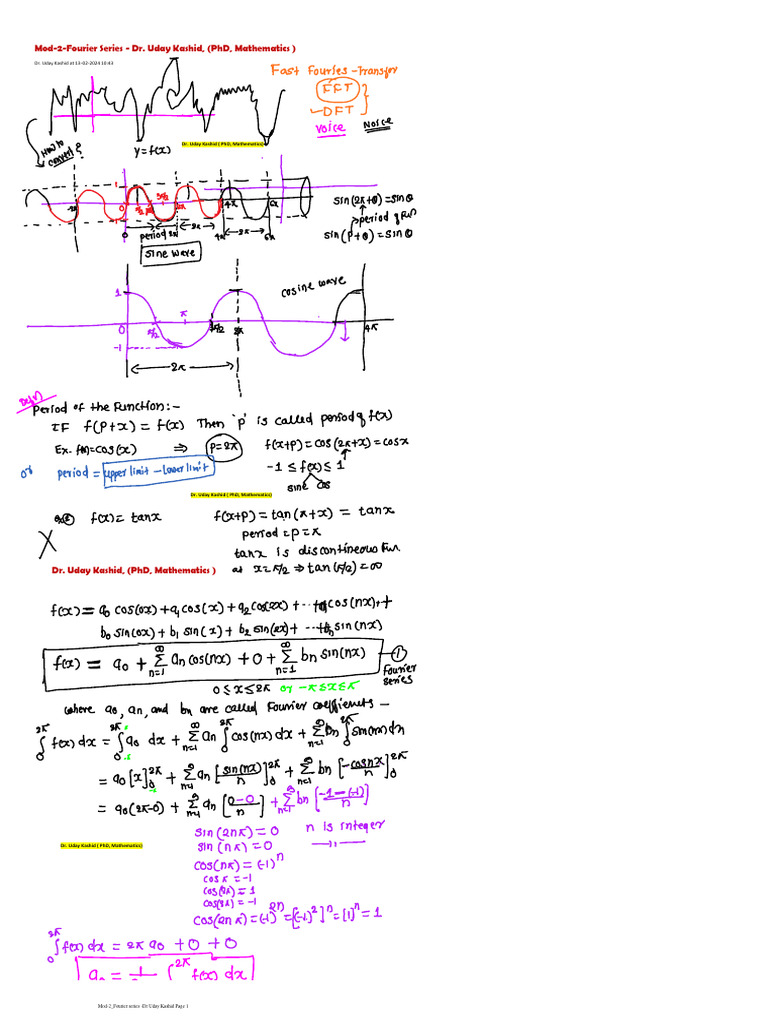 Mod-2-Fourier Series - Dr. Uday Kashid, (PhD, Mathematics )
Dr. Uday Kashid at 13-02-2024 10:43
Fast Fouries-Transfor
FFT
DFT
Voice Noice
How to convert?
y=f(x)
Dr. Uday Kashid ( PhD, Mathematics)
sin(2π+θ)=sinθ
period of fun
sin(P+θ)=sinθ
1 0 -1
period 2π 2π 4π 2π 6π
sine wave
cosine wave
1
0 π/2 π 3π/2 2π 4π
-1
2π
Defn
Period of the Function:-
IF f(P+x) = f(x) Then 'p' is called period of f(x)
Ex. f(x)=cos(x) ⇒ P=2π f(x+p)=cos(2π+x)=cosx
-1 ≤ f(x) ≤ 1
sine cos
or period = upper limit - lower limit
Dr. Uday Kashid ( PhD, Mathematics)
f(x)= tanx f(x+p)=tan(π+x) = tanx
period=p=π
tanx is discontineous Fun
at x=π/2 ⇒ tan(π/2)=∞
Dr. Uday Kashid, (PhD, Mathematics )
f(x)= a0 cos(0x)+a1 cos(x)+a2 cos(2x)+ ··· +an cos(nx)+
b0 sin(0x)+ b1 sin(x)+ b2 sin(2x)+ ··· +bn sin(nx)
f(x) = a0 + ∞Σn=1 an cos(nx) + 0 + ∞Σn=1 bn sin(nx) —①
Fourier series
0≤x≤2π or -π≤x≤π
where a0, an, and bn are called Fourier coefficients -
∫₀^2π f(x) dx = ∫₀^2π a0 dx + ∞Σn=1 an ∫₀^2π cos(nx) dx + ∞Σn=1 bn ∫₀^2π sin(nx) dx
= a0 [x]₀^2π + ∞Σn=1 an [sin(nx)/n]₀^2π + ∞Σn=1 bn [-cosnx/n]₀^2π
= a0(2π-0) + ∞Σn=1 an [0-0/n] + ∞Σn=1 bn [-1-(-1)/n]
sin(2nπ)=0 n is integer
sin(nπ)=0 —"—
Dr. Uday Kashid ( PhD, Mathematics)
cos(nπ)=(-1)^n
cosπ=-1
cos(2π)=1
cos(3π)=-1
cos(2nπ)=(-1)^2n=[(-1)^2]^n=[1]^n=1
∫₀^2π f(x) dx = 2π a0 + 0 + 0
a0 = 1 ∫^2π f(x) dx
Mod-2_Fourier series -Dr Uday Kashid Page 1